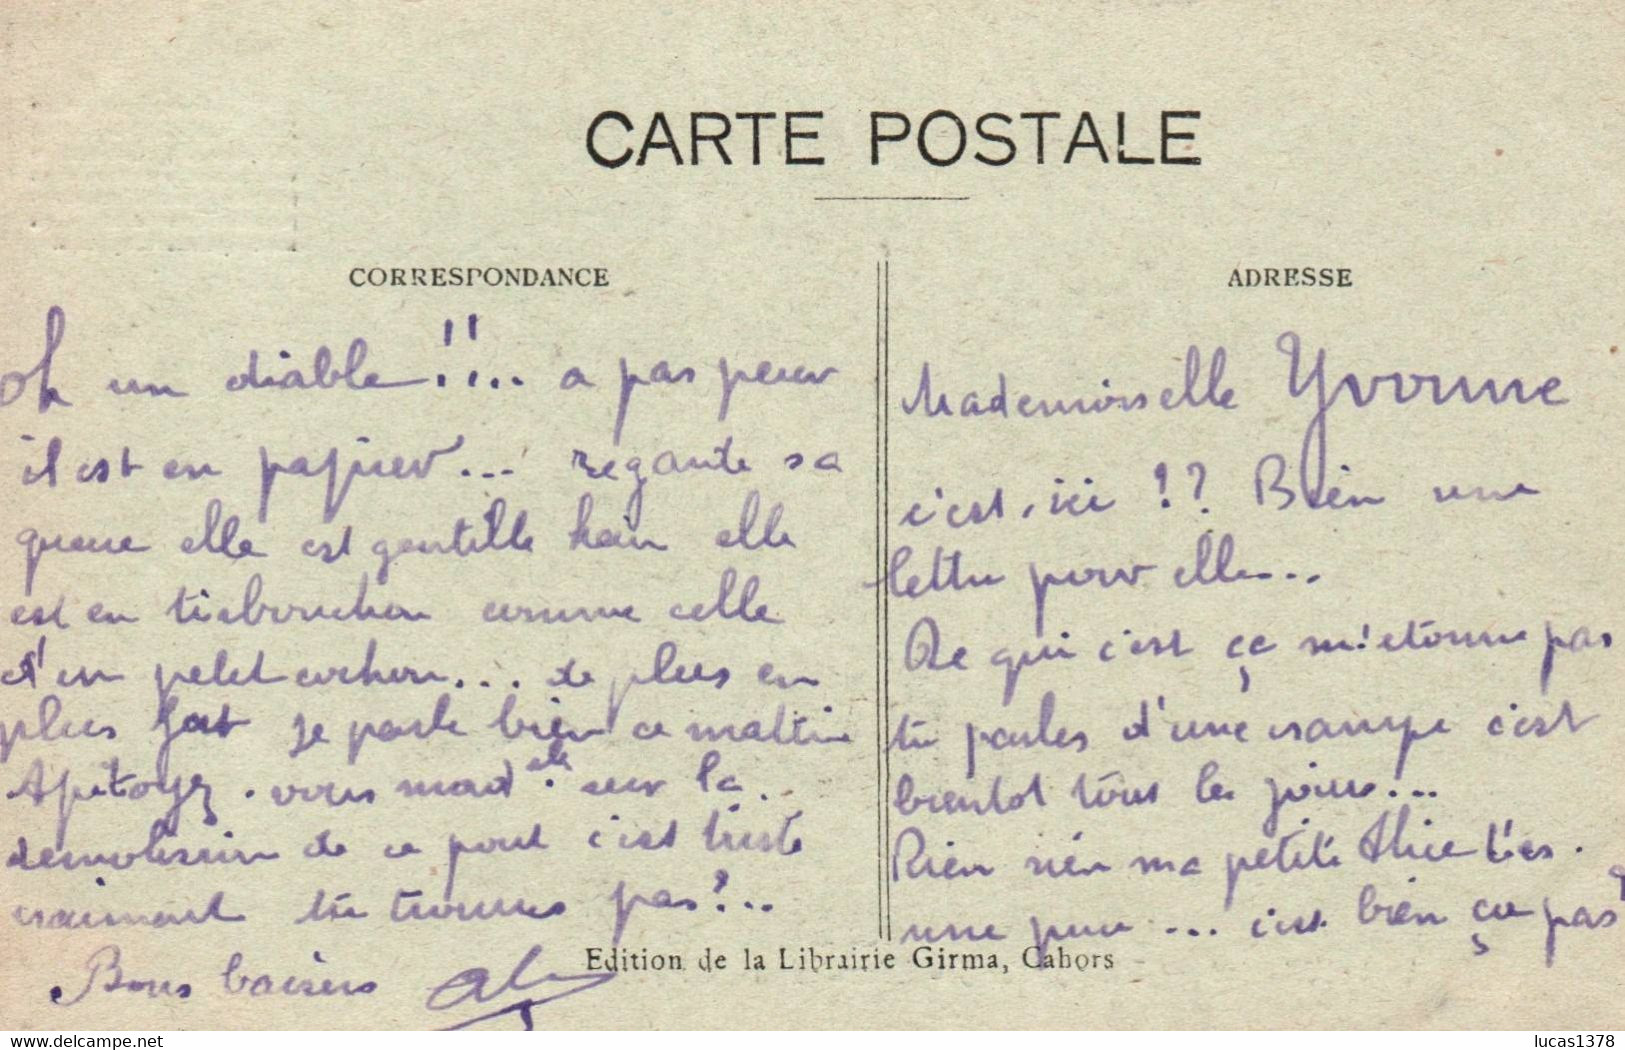 CARTE POSTALE
CORRESPONDANCE
oh un diable !!... a pas peur
il est en papier... regarde sa
queue elle est gentille hein elle
est en tirbouchon comme celle
d'un petit cochon... de plus en
plus fort je parle bien ce mattin
Apitoyez-vous mad elle sur la
demolision de ce pont c'est triste
vraiment tu trouves pas?...
Bons baisers
ADRESSE
Mademoisselle Yvonne
c'est, ici !? Bien une
lettre pour elle...
De qui c'est ça m'etonne pas
tu parles d'une crampe c'est
bientot tous les jours...
Rien rien ma petite Alice t'es
une pure ... c'est bien ça pas?
Edition de la Librairie Girma, Cahors
www.delcampe.net
lucas1378